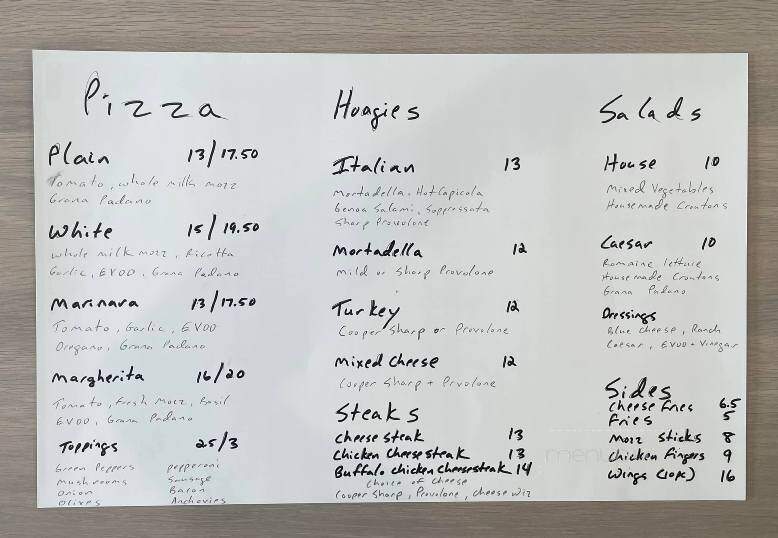 Pizza
Plain 13/17.50
Tomato, whole milk mozz
Grana Padano
White 15/19.50
whole milk mozz, Ricotta
Garlic, EVOO, Grana Padano
Marinara 13/17.50
Tomato, Garlic, EVOO
Oregano, Grana Padano
Margherita 16/20
Tomato, Fresh Mozz, Basil
EVOO, Grana Padano
Toppings 25/3
Green Peppers pepperoni
mushrooms Sausage
Onion Bacon
Olives Anchovies
Hoagies
Italian 13
Mortadella, Hot Capicola
Genoa Salami, Soppressata
Sharp Provolone
Mortadella 12
Mild or Sharp Provolone
Turkey 12
Cooper Sharp or Provolone
Mixed Cheese 12
Cooper Sharp + Prvolone
Steaks
Cheese steak 13
Chicken Cheesesteak 13
Buffalo chicken cheesesteak 14
Choice of Cheese
Cooper Sharp, Provolone, Cheese Wiz
Salads
House 10
Mixed Vegetables
Housemade Croutons
Caesar 10
Romaine lettuce
Housemade Croutons
Grana Padano
Dressings
Blue Cheese, Ranch
Caesar, EVOO + Vinegar
Sides
Cheese Fries 6.5
Fries 5
Mozz Sticks 8
Chicken Fingers 9
Wings (10pc) 16